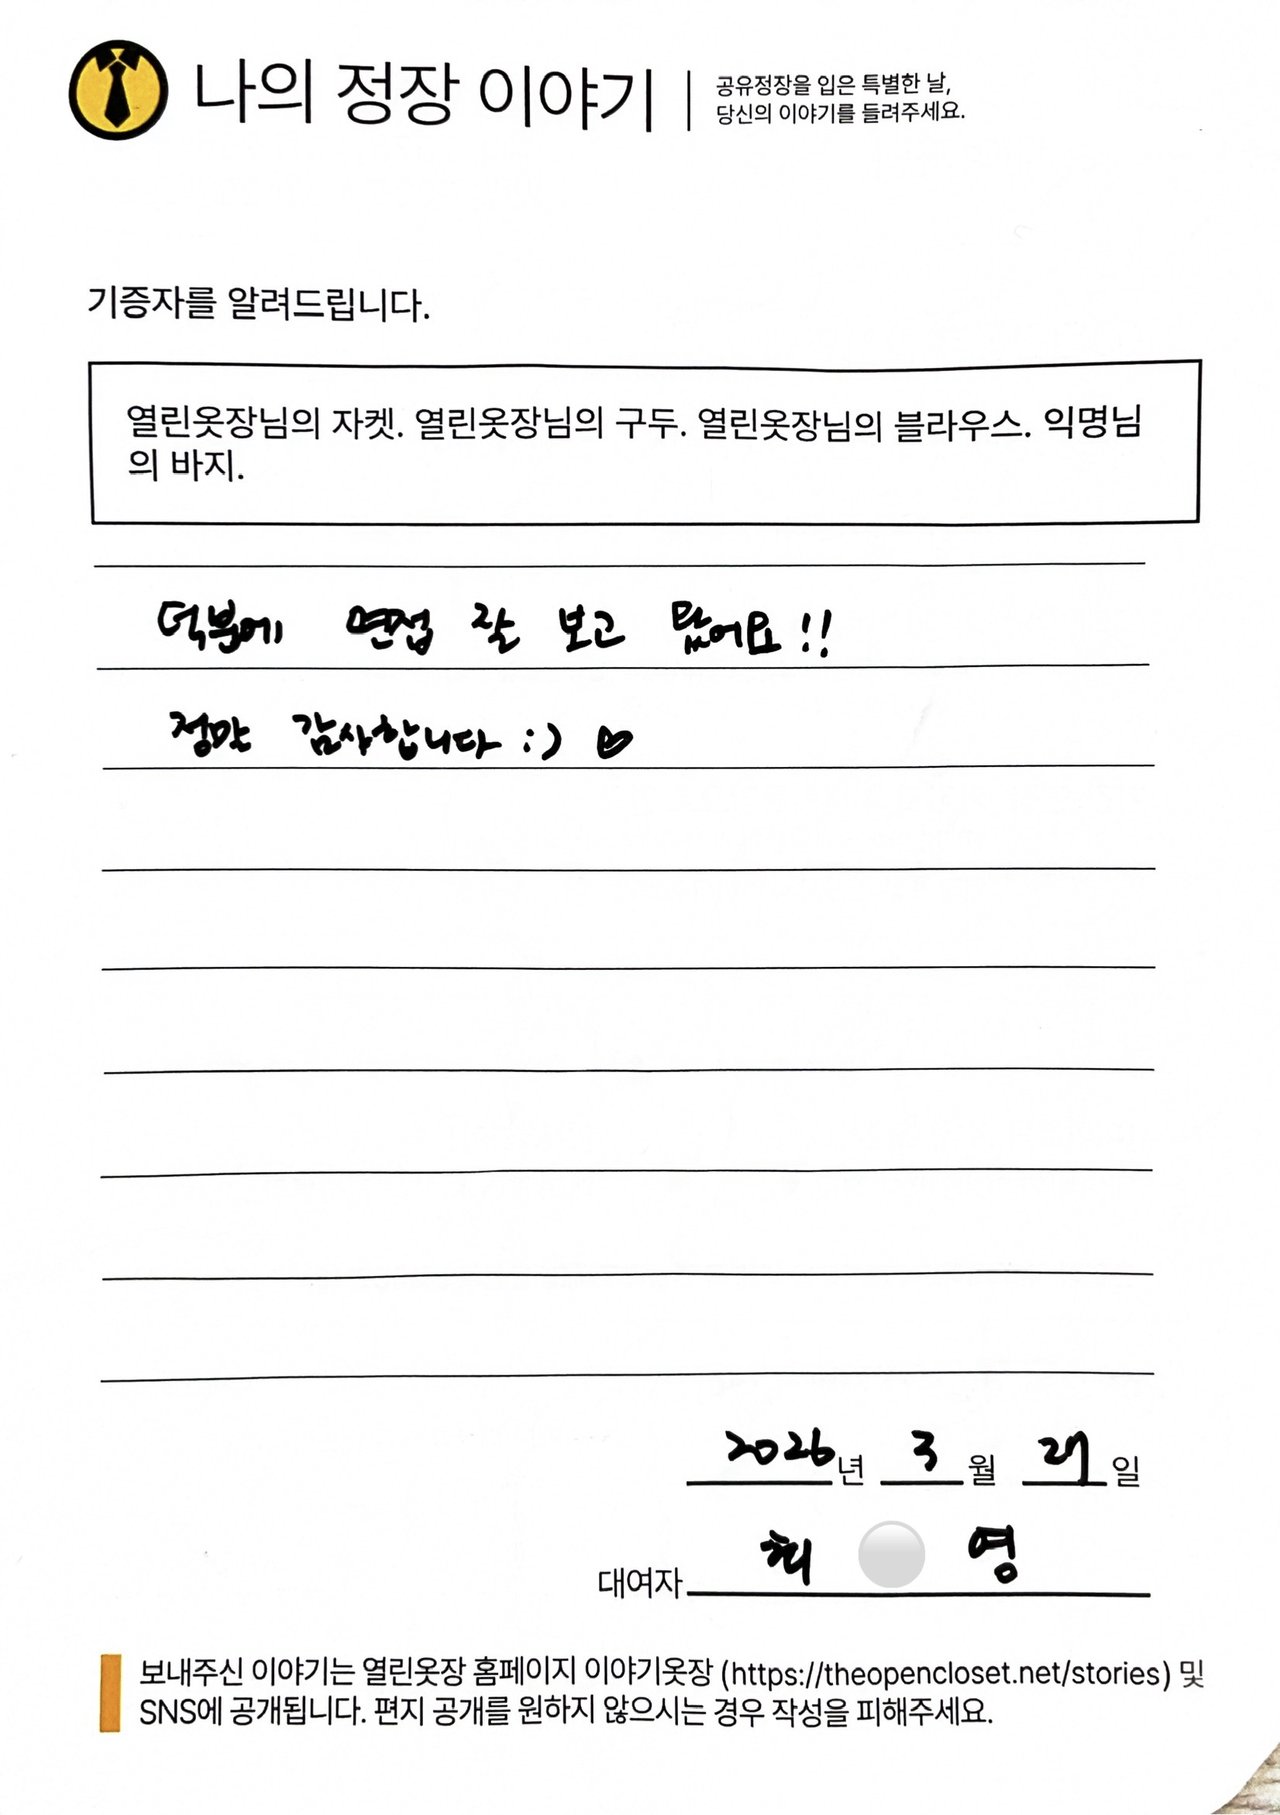 나의 정장 이야기
공유정장을 입은 특별한 날,
당신의 이야기를 들려주세요.
기증자를 알려드립니다.
열린옷장님의 자켓. 열린옷장님의 구두. 열린옷장님의 블라우스. 익명님
의 바지.
덕분에 면접 잘 보고 왔어요!!
정말 감사합니다 :) ♡
2026년 3월 27일
대여자 최 영
보내주신 이야기는 열린옷장 홈페이지 이야기옷장 (https://theopencloset.net/stories) 및
SNS에 공개됩니다. 편지 공개를 원하지 않으시는 경우 작성을 피해주세요.